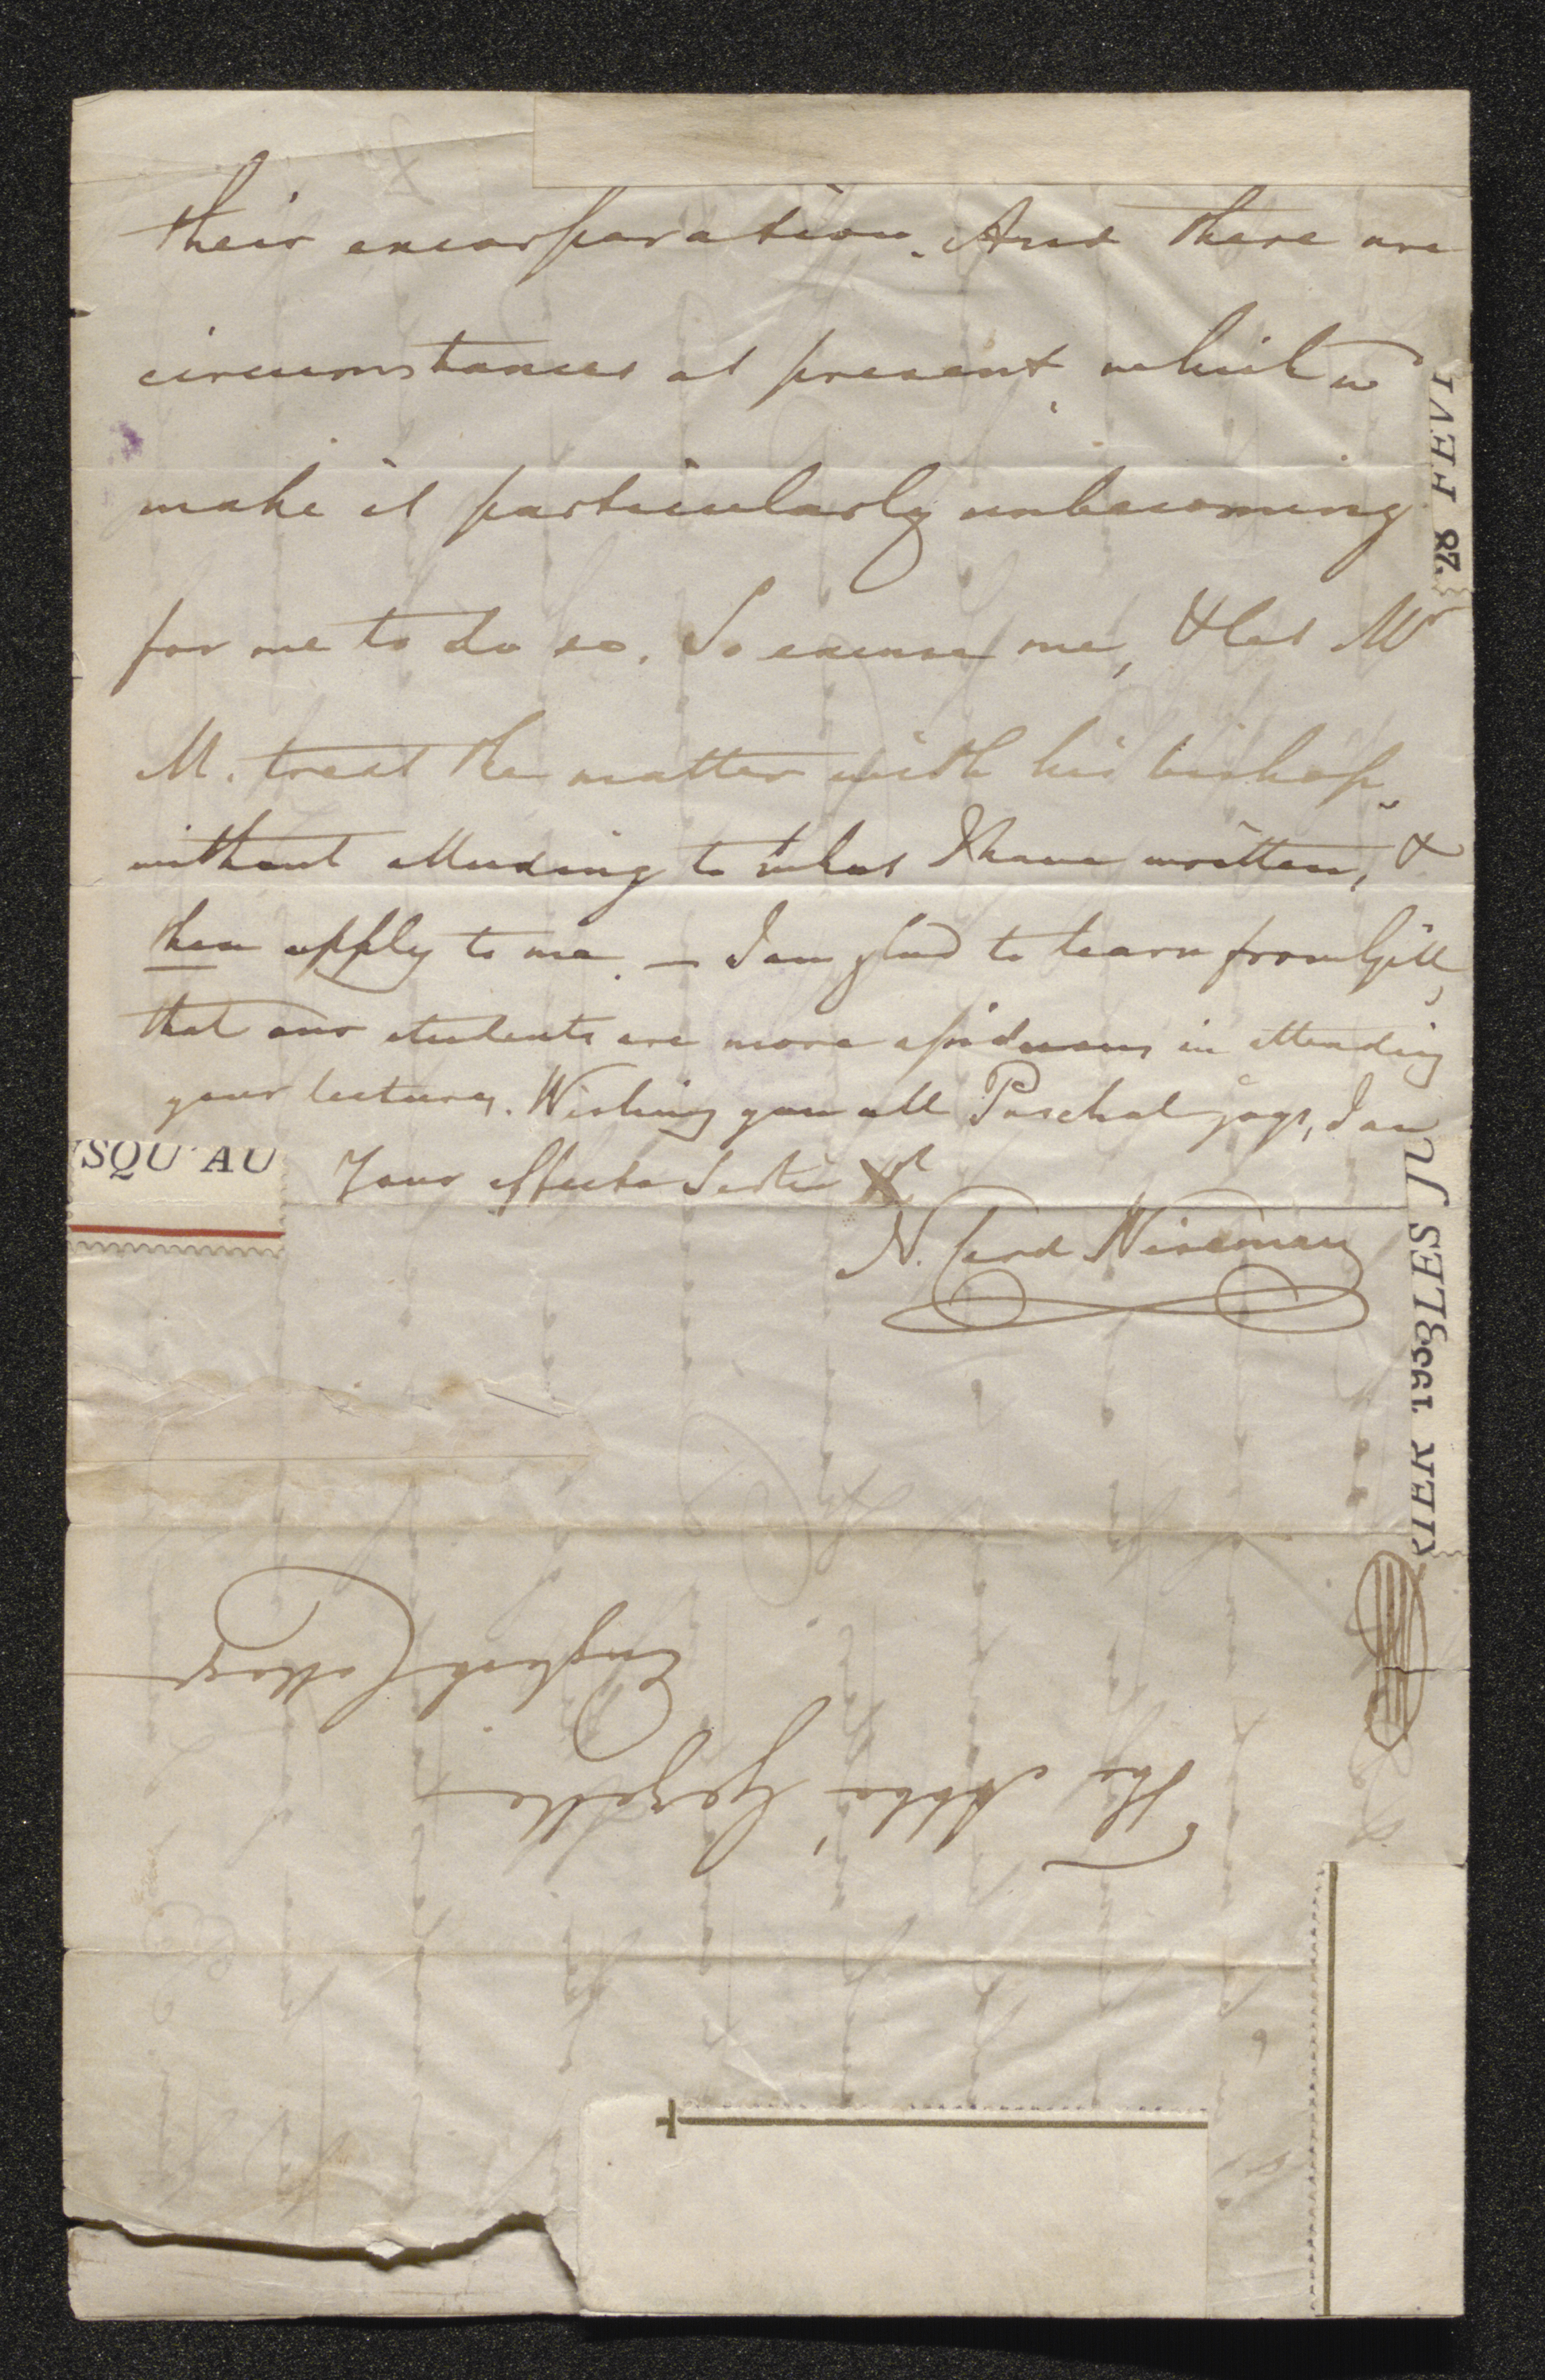 their encorporation. And there are
circumstances at present which w
make it particularly unbecoming
for me to do so. So excuse me, & let Mr
M. treat the matter with his bishop
without alluding to what I have written, &
then apply to me. — I am glad to learn from Gill,
that our students are more assiduous in attending
your lectures. Wishing you all Paschal joys, I am
Your affecte Sert in Xt
N. Card Wiseman
The Abbé Gezelle
English College
SQU'AU